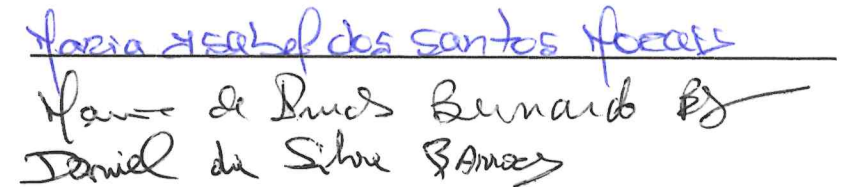 Maria Ysabel dos Santos Moraes
de Bernardo
Daniel da Silva Barros